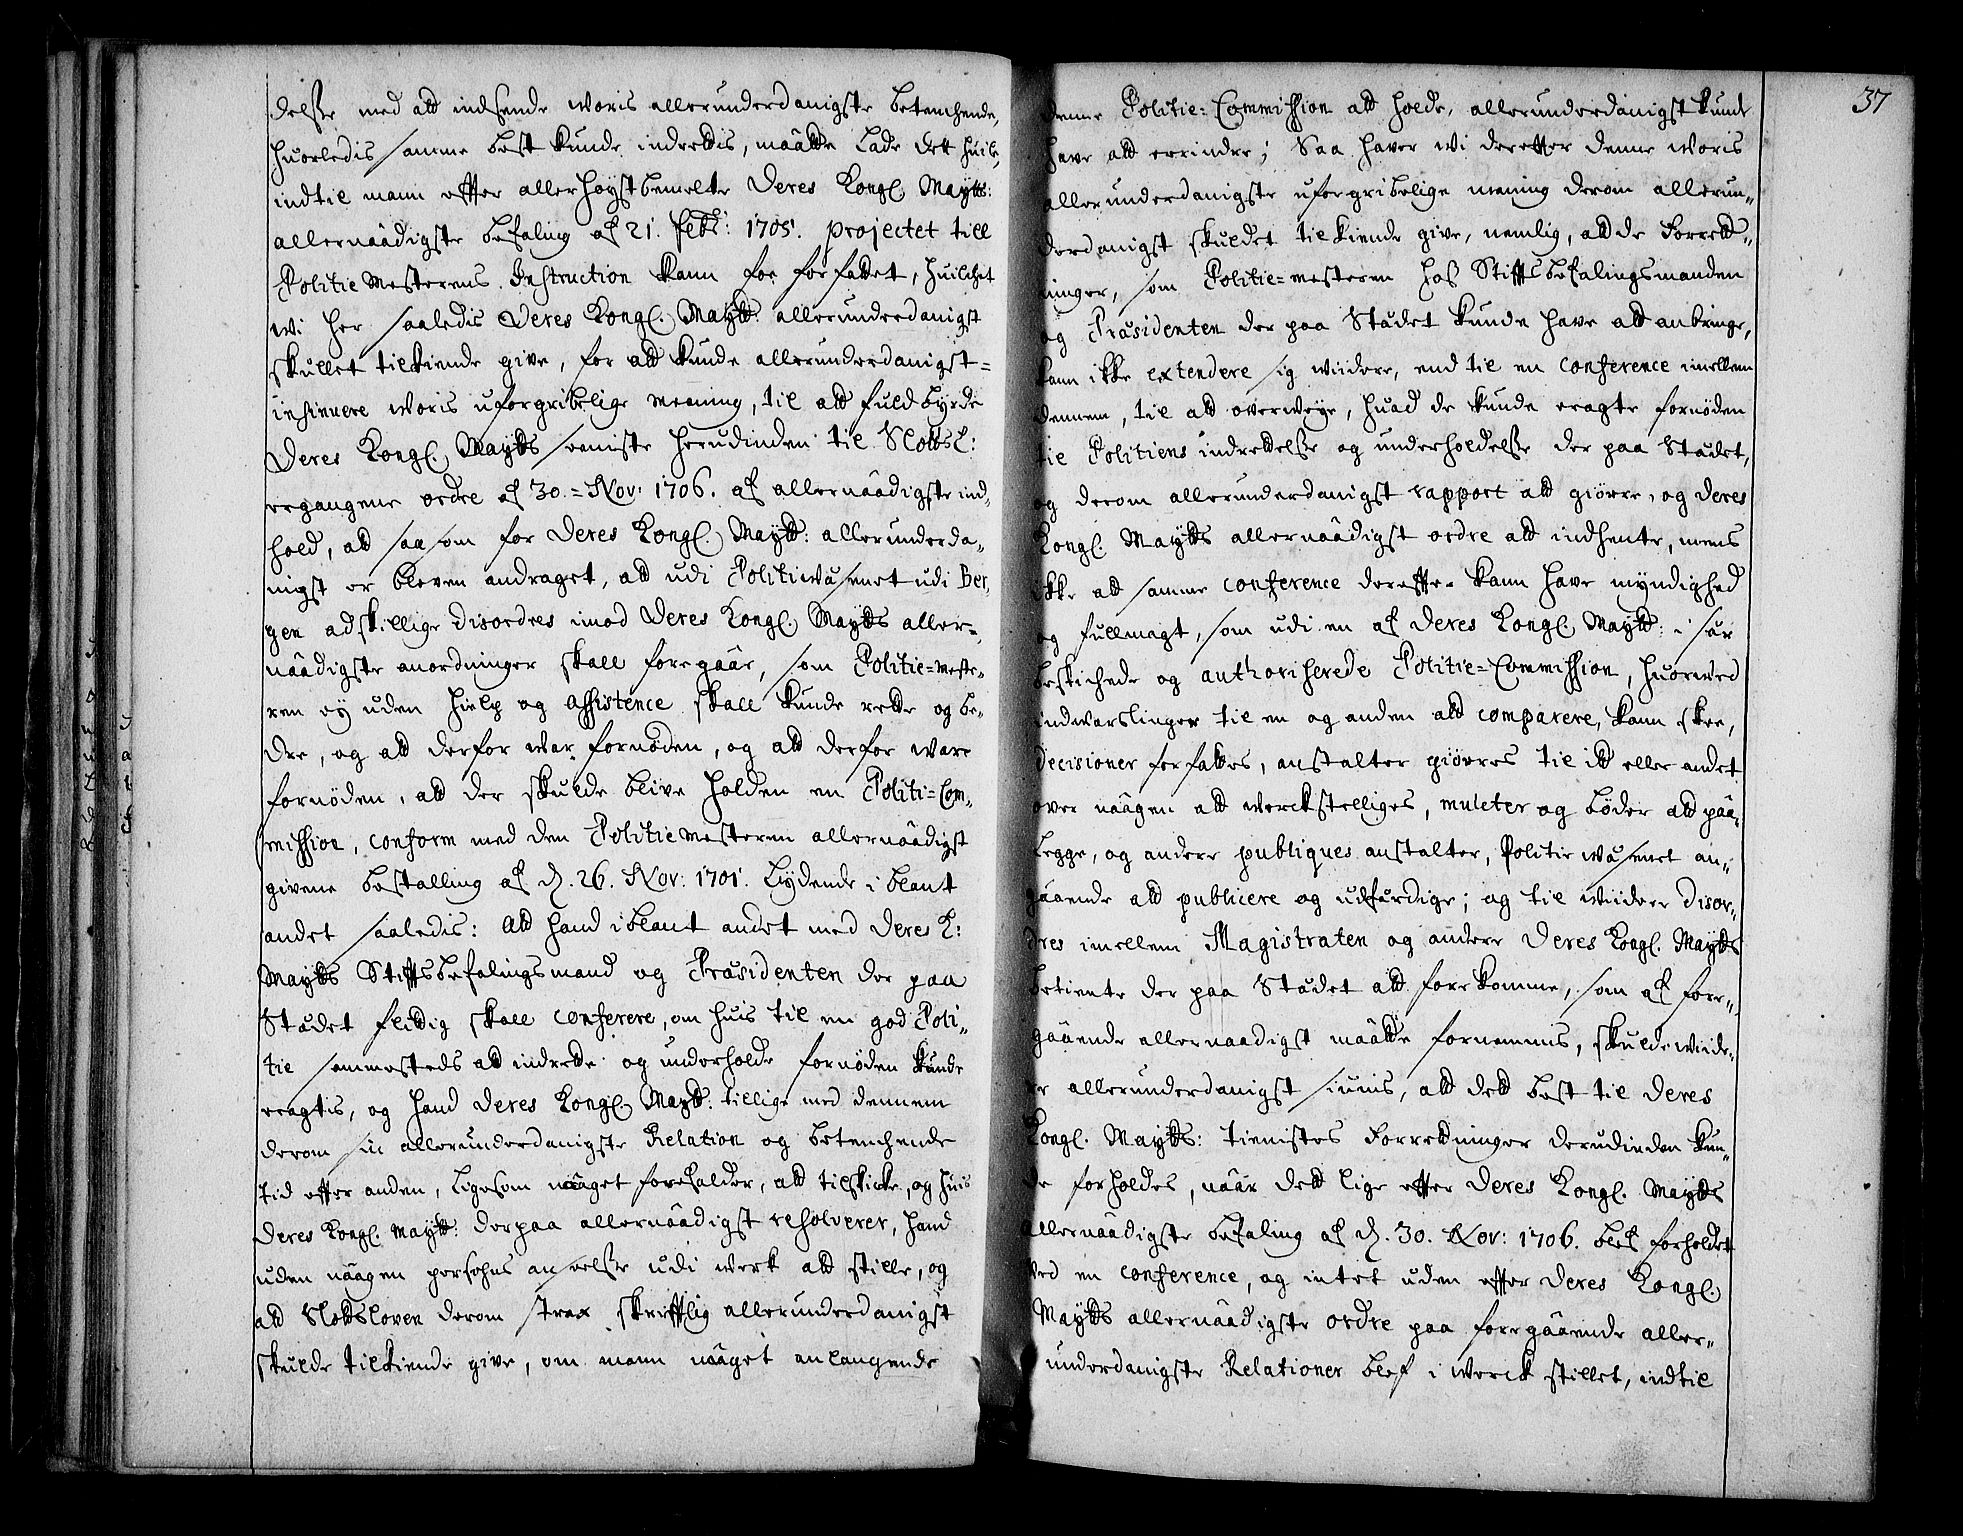 delsse med att indsende woris allerunderdanigste betenchende,
huorledis samme best kunde indrettis, måtte lade det huile,
indtil mann effter allerhøystbemelte Deres Kongl. Maytts:
allernaadigste befaling af 21. Febr: 1705. projectet till
Politiemesterens Instruction kann faae forfattet, huilchet
wi her saaledis Deres Kongl. Maytt: allerunderdanigst
skullet tilkiende give, for att kunde allerunderdanigst=
insinuere woris uforgribelige meening, til att fuldbyrde
Deres Kongl. Maytts seeniste herudinden til Slotsl:
ergangene ordre af 30.= Nov: 1706. af allernaadigste ind,
hold, att saasom for Deres Kongl. Maytt: allerunderda,,
nigst er bleven andraget, att udi Politiwäsenet udi Ber,
gen adskillige disordres imod Deres Kongl. Maytts aller=,
naadigste anordninger skall foregaae, som Politie=meste,
ren ey uden hielp og assistence skall kunde rette og be,
dre, og att derfor war fornöden, og att derfor ware
fornöden, att der skulde blive holden en Politi=Com,
mission, conform med den Politiemesteren allernaadigst
givene bestalling af d. 26. Nov: 1701. lydende iblant
andet saaledis: Att hand iblant andet med Deres K:
Maytts Stifftsbefalingsmand og Præsidenten der paa
Stædet flittig skall conferere, om huis til en god Poli,
tie sammesteds att indrette og underholde fornöden kunde
eragtis, og hand Deres Kongl. Maytt: tillige med dennem
derom sin allerunderdanigste Relation og betenchende
tid effter anden, ligesom naaget forefalder, att tilskicke, og huis
Deres Kongl. Maytt: derpaa allernaadigst resolverer, hand
uden naagen persohns anseelsse udi werk att stille, og
att Slotsloven derom strax skrifftlig allerunderdanigst
skulde tilkiende give, om mann naaget anlangende
37
denne Politie=Commission att holde, allerunderdanigst kunde
have att erindre; Saa haver wi derefter denne woris
allerunderdanigste uforgribelige mening derom allerun,,
derdanigst skuldet tilkiende give, nemlig, att de Forrett,,
ninger, som Politie=mesteren hos Stifftsbefalingsmanden
og Præsidenten der paa Stædet kunde have att anbringe,
kann ikke extendere sig widere, end til en conference imellem
dennem, til att overweye, huad de kunde eragte fornöden
til Politiens indrettelsse og underholdelsse der paa Stædet,
og derom allerunderdanigst rapport att giörre, og Deres
Kongl. Maytts allernaadigst ordre att indhente, mens
ikke att samme conference derefter kann have myndighed
og fullmagt, som udi en af Deres Kongl. Maytt: i sær
beskichede og authoriserede Politie=Commission, huorwed
indwarslinger til en og anden att comparere, kann skee,
decisioner forfattes, anstalter giörres til itt eller andet
over naagen att werckstelliges, mulcter og böder att paa,
legge, og andere publiques anstalter, Politiewäsenet an,,
gaaende att publicere og udfærdige; og til widere disor,,
dres imellem Magistraten og andere Deres Kongl. Maytts
betiente der paa Stædet att forekomme, som af fore,,
gaaende allernaadigst maatte fornemmis, skulde wide,,
re allerunderdanigst siunis, att dett best til Deres
Kongl. Maytts: tienistes Forrettninger derudinden kun,,
de forholdes, naar dett lige effter Deres Kongl. Maytts
allernaadigste befaling af d. 30. Nov: 1706. blef forholdet
ved en conference, og intet uden effter Deres Kongl.
Maytts allernaadigste ordre paa foregaaende aller,,
underdanigste Relationer blef i werck stillet, indtil